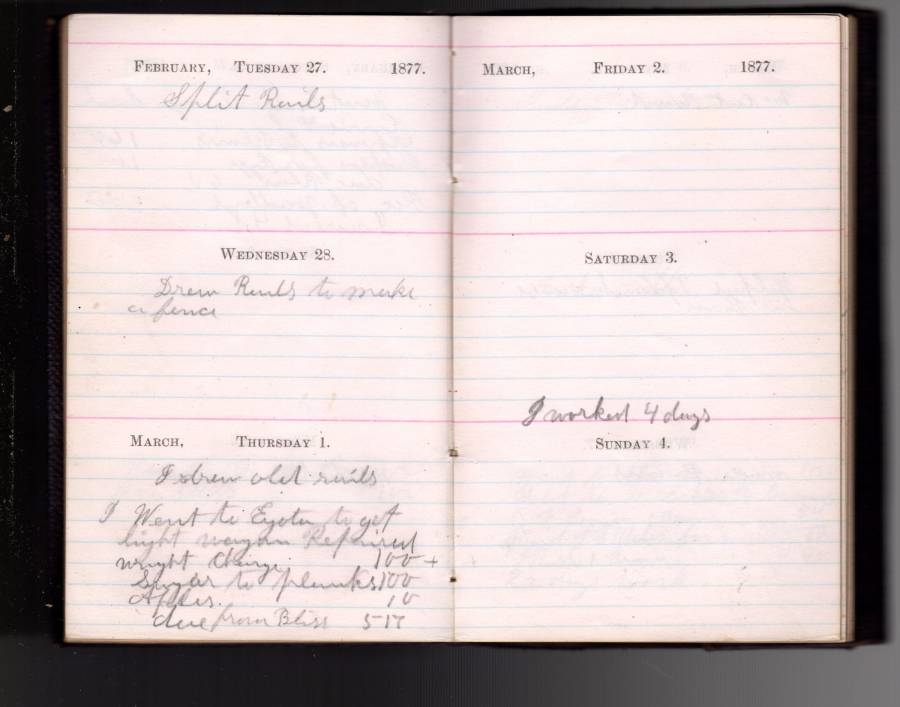 FEBRUARY, TUESDAY 27. 1877.
Split Rails
WEDNESDAY 28.
Drew Rails to make
a fence
MARCH, THURSDAY 1.
I drew old rails
I Went to Eyota to get
light wagon Repaired
wright Charge 100 +
Sugar to 100
Apples 10
due from Bliss 5 17
MARCH, FRIDAY 2. 1877.
SATURDAY 3.
I worked 4 days
SUNDAY 4.